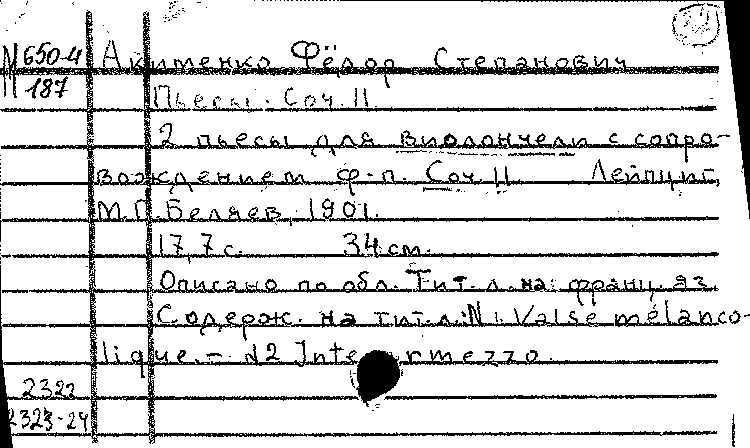 М 650-4 Акименко Фёдор Степанович
187 Пьесы. Соч. 11
2 пьесы для виолончели с сопро-
вождением ф-п. Соч. 11 Лейпциг,
М.П. Беляев, 1901.
17,7 с. 34 см.
Описано по обл. Тит. л. на франц. яз.
Содерж. на тит. л.: N1. Valse mélanco-
lique. – N2 Intermezzo.
2322
2323-24